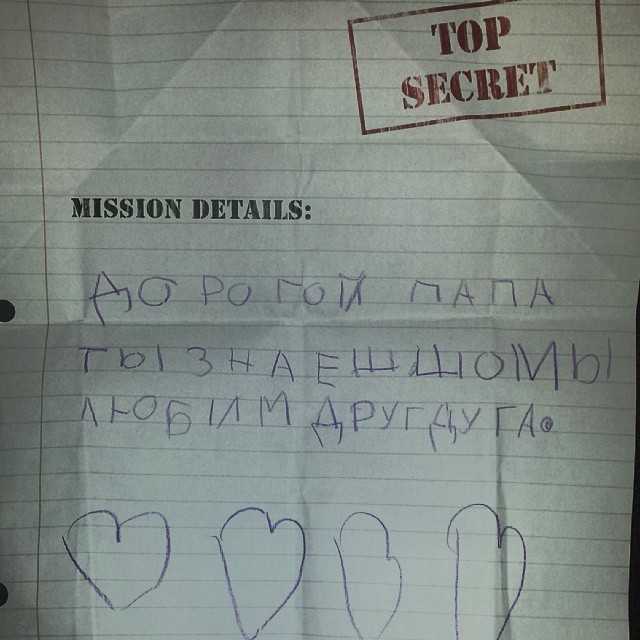 TOP
SECRET
MISSION DETAILS:
ДОРОГОЙ ПАПА
ТЫ ЗНАЕШ ШО МЫ
ЛЮБИМ ДРУГ ДУГА.